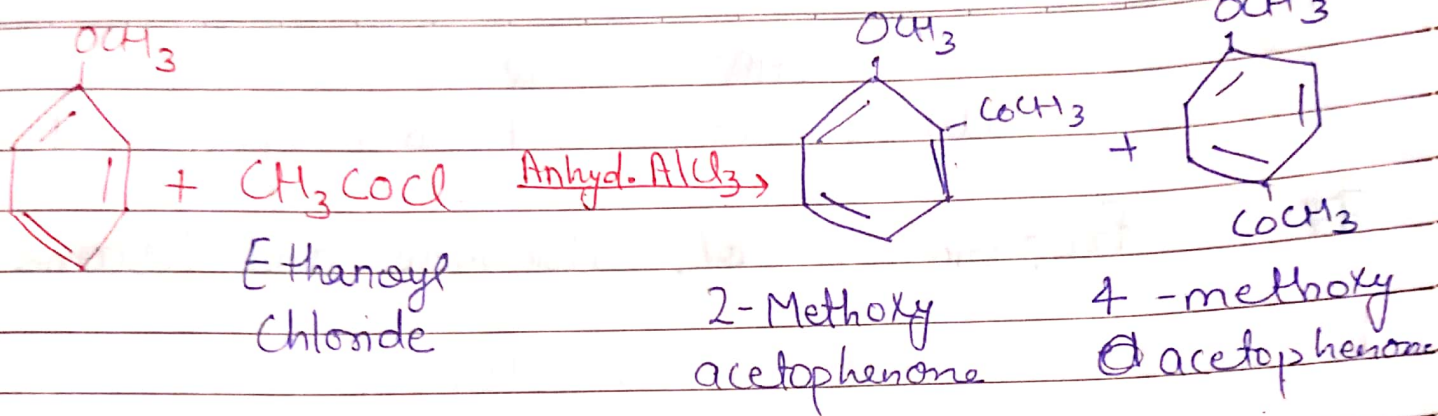 OCH3 OCH3 OCH3
COCH3
+ CH3COCl Anhyd. AlCl3 +
COCH3
Ethanoyl
Chloride
2-Methoxy
acetophenone
4-methoxy
acetophenone